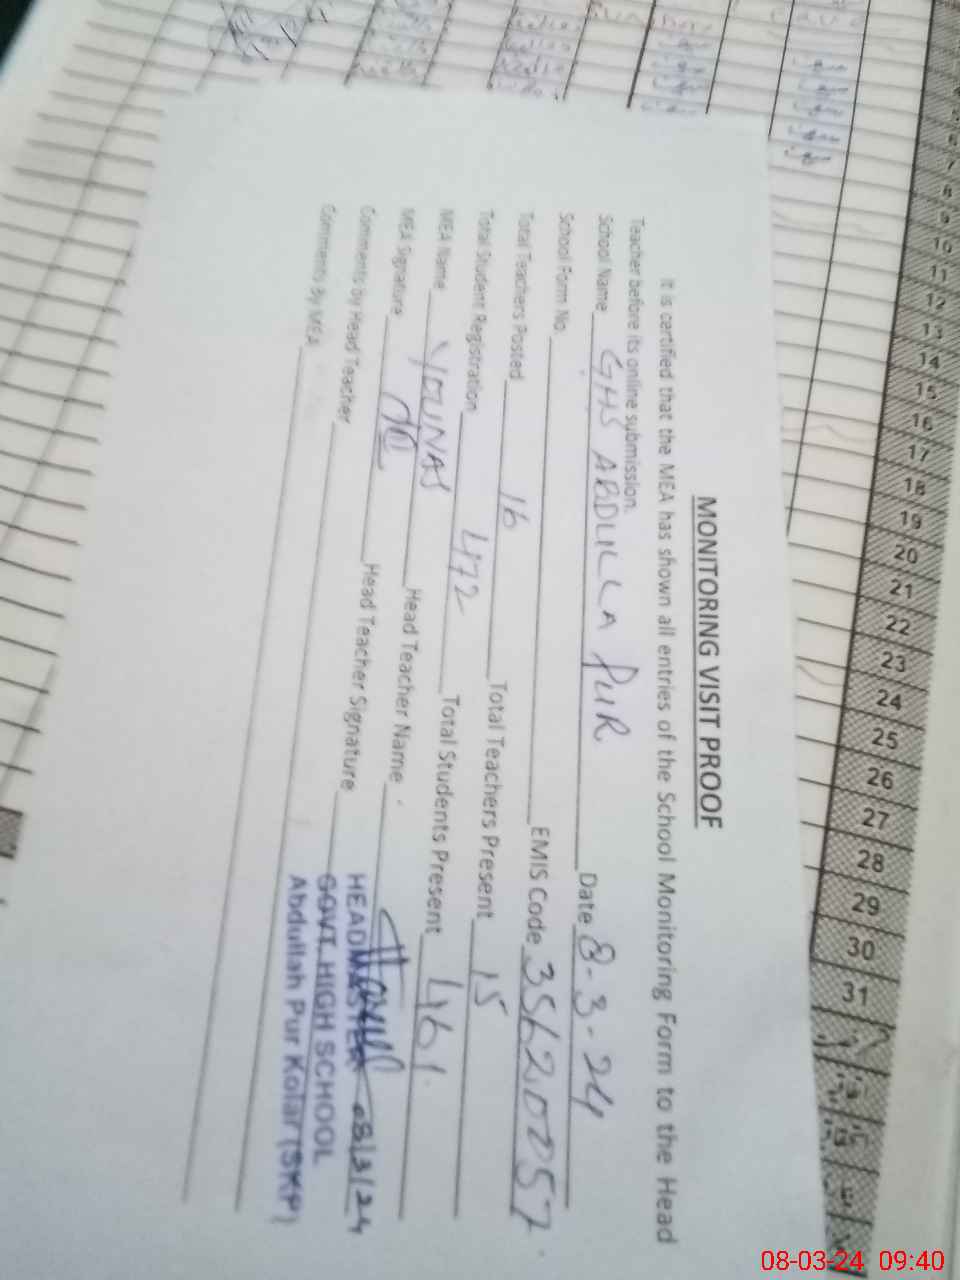 MONITORING VISIT PROOF
It is certified that the MEA has shown all entries of the School Monitoring Form to the Head
Teacher before its online submission.
School Name GHS ABDULLA PUR Date 8-3-24
School Form No. EMIS Code 35620057.
Total Teachers Posted 16 Total Teachers Present 15
Total Student Registration 472 Total Students Present 461.
MEA Name YOUNAS Head Teacher Name
MEA Signature Head Teacher Signature 08/3/24
Comments by Head Teacher
Comments By MEA
HEADMASTER
GOVT. HIGH SCHOOL
Abdullah Pur Kolar (SKP)
10
11
12
13
14
15
16
17
18
19
20
21
22
23
24
25
26
27
28
29
30
31
08-03-24 09:40